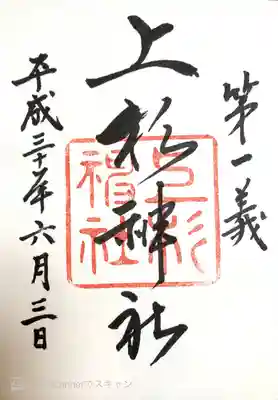 第一義
上杉神社
上杉神社
平成三十年六月三日
スキャン